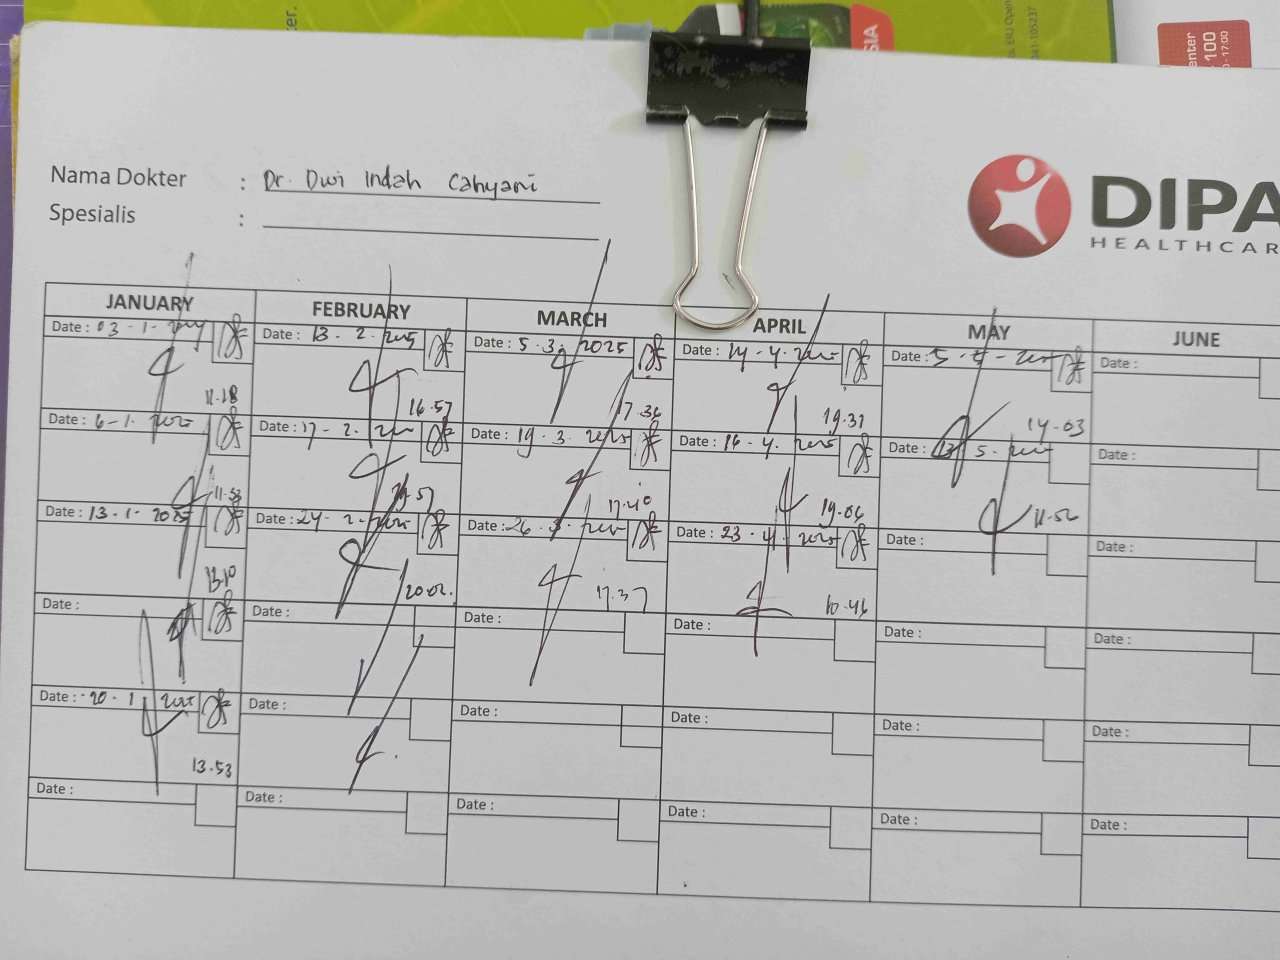 SIA
100
17:00
Nama Dokter : Dr. Dwi Indah Cahyani
Spesialis :
DIPA
HEALTHCAR
JANUARY FEBRUARY MARCH APRIL MAY JUNE
Date : 03 - 1 - 2025 Date : 13 - 2 - 2025 Date : 5 - 3 - 2025 Date : 14 - 4 - 2025 Date : 5 - 5 - 2025 Date :
11.18 16.57 17.36 19.31 14.03
Date : 6 - 1 - 2025 Date : 17 - 2 - 2025 Date : 19 - 3 - 2025 Date : 16 - 4 - 2025 Date : 13 - 5 - 2025 Date :
11.53 17.40 19.06 11.56
Date : 13 - 1 - 2025 Date : 24 - 2 - 2025 Date : 26 - 3 - 2025 Date : 23 - 4 - 2025 Date : Date :
13.10 20.02 17.37 10.46
Date : Date : Date : Date : Date : Date :
Date : 20 - 1 2025 Date : Date : Date : Date : Date :
13.53
Date : Date : Date : Date : Date : Date :